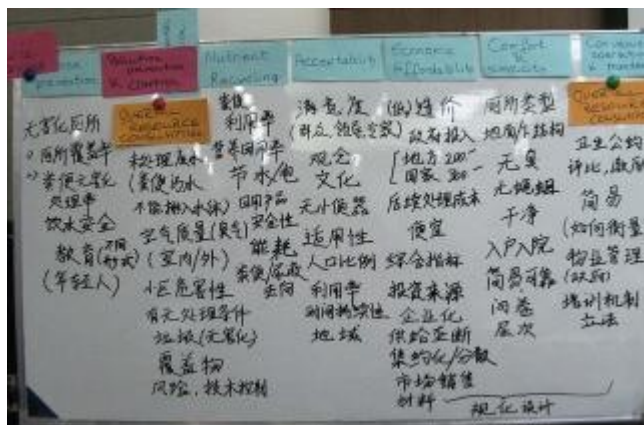 prevention
Pollution
prevention
& control
Nutrient
Recycling
Acceptability
Economic
Affordability
Comfort
&
simplicity
OVERALL
RESOURCE
CONSUMPTION
OVERALL
RESOURCE
无害化厕所
厕所覆盖率
粪便无害化
处理率
饮水安全
教育
(年轻人)
未处理废水
(粪便污水
空气质量(臭气)
(室内/外)
小区危害性
有无处理条件
垃圾(无害化)
覆盖物
风险,技术控制
利用率
节水/电
回用产品
安全性
能耗
去向
满意度
(群众,领导,专家)
观念
文化
无小便器
适用性
人口比例
利用率
地域
(低)造价
政府投入
地方 200
国家 300
后续处理成本
便宜
综合指标
投资来源
企业化
供给垄断
集约化/分散
市场销售
材料
厕所类型
地面与结构
无臭
无蝇蛆
干净
入户入院
简易可靠
问卷
层次
卫生公约
评比,激励
简易
(如何衡量)
物业管理
培训机制
立法
规化设计